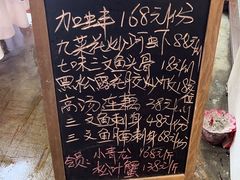 加拿蚌 168元/份
九菜花炒河虾 88元/份
七味三文鱼头骨 18元/份
黑松露花胶炒饭
高汤莲藕 28元/份
三文鱼刺身 48元/份
三文鱼腩刺身 68元/份
合负：小青龙 168元/斤
松叶蟹 138元/斤